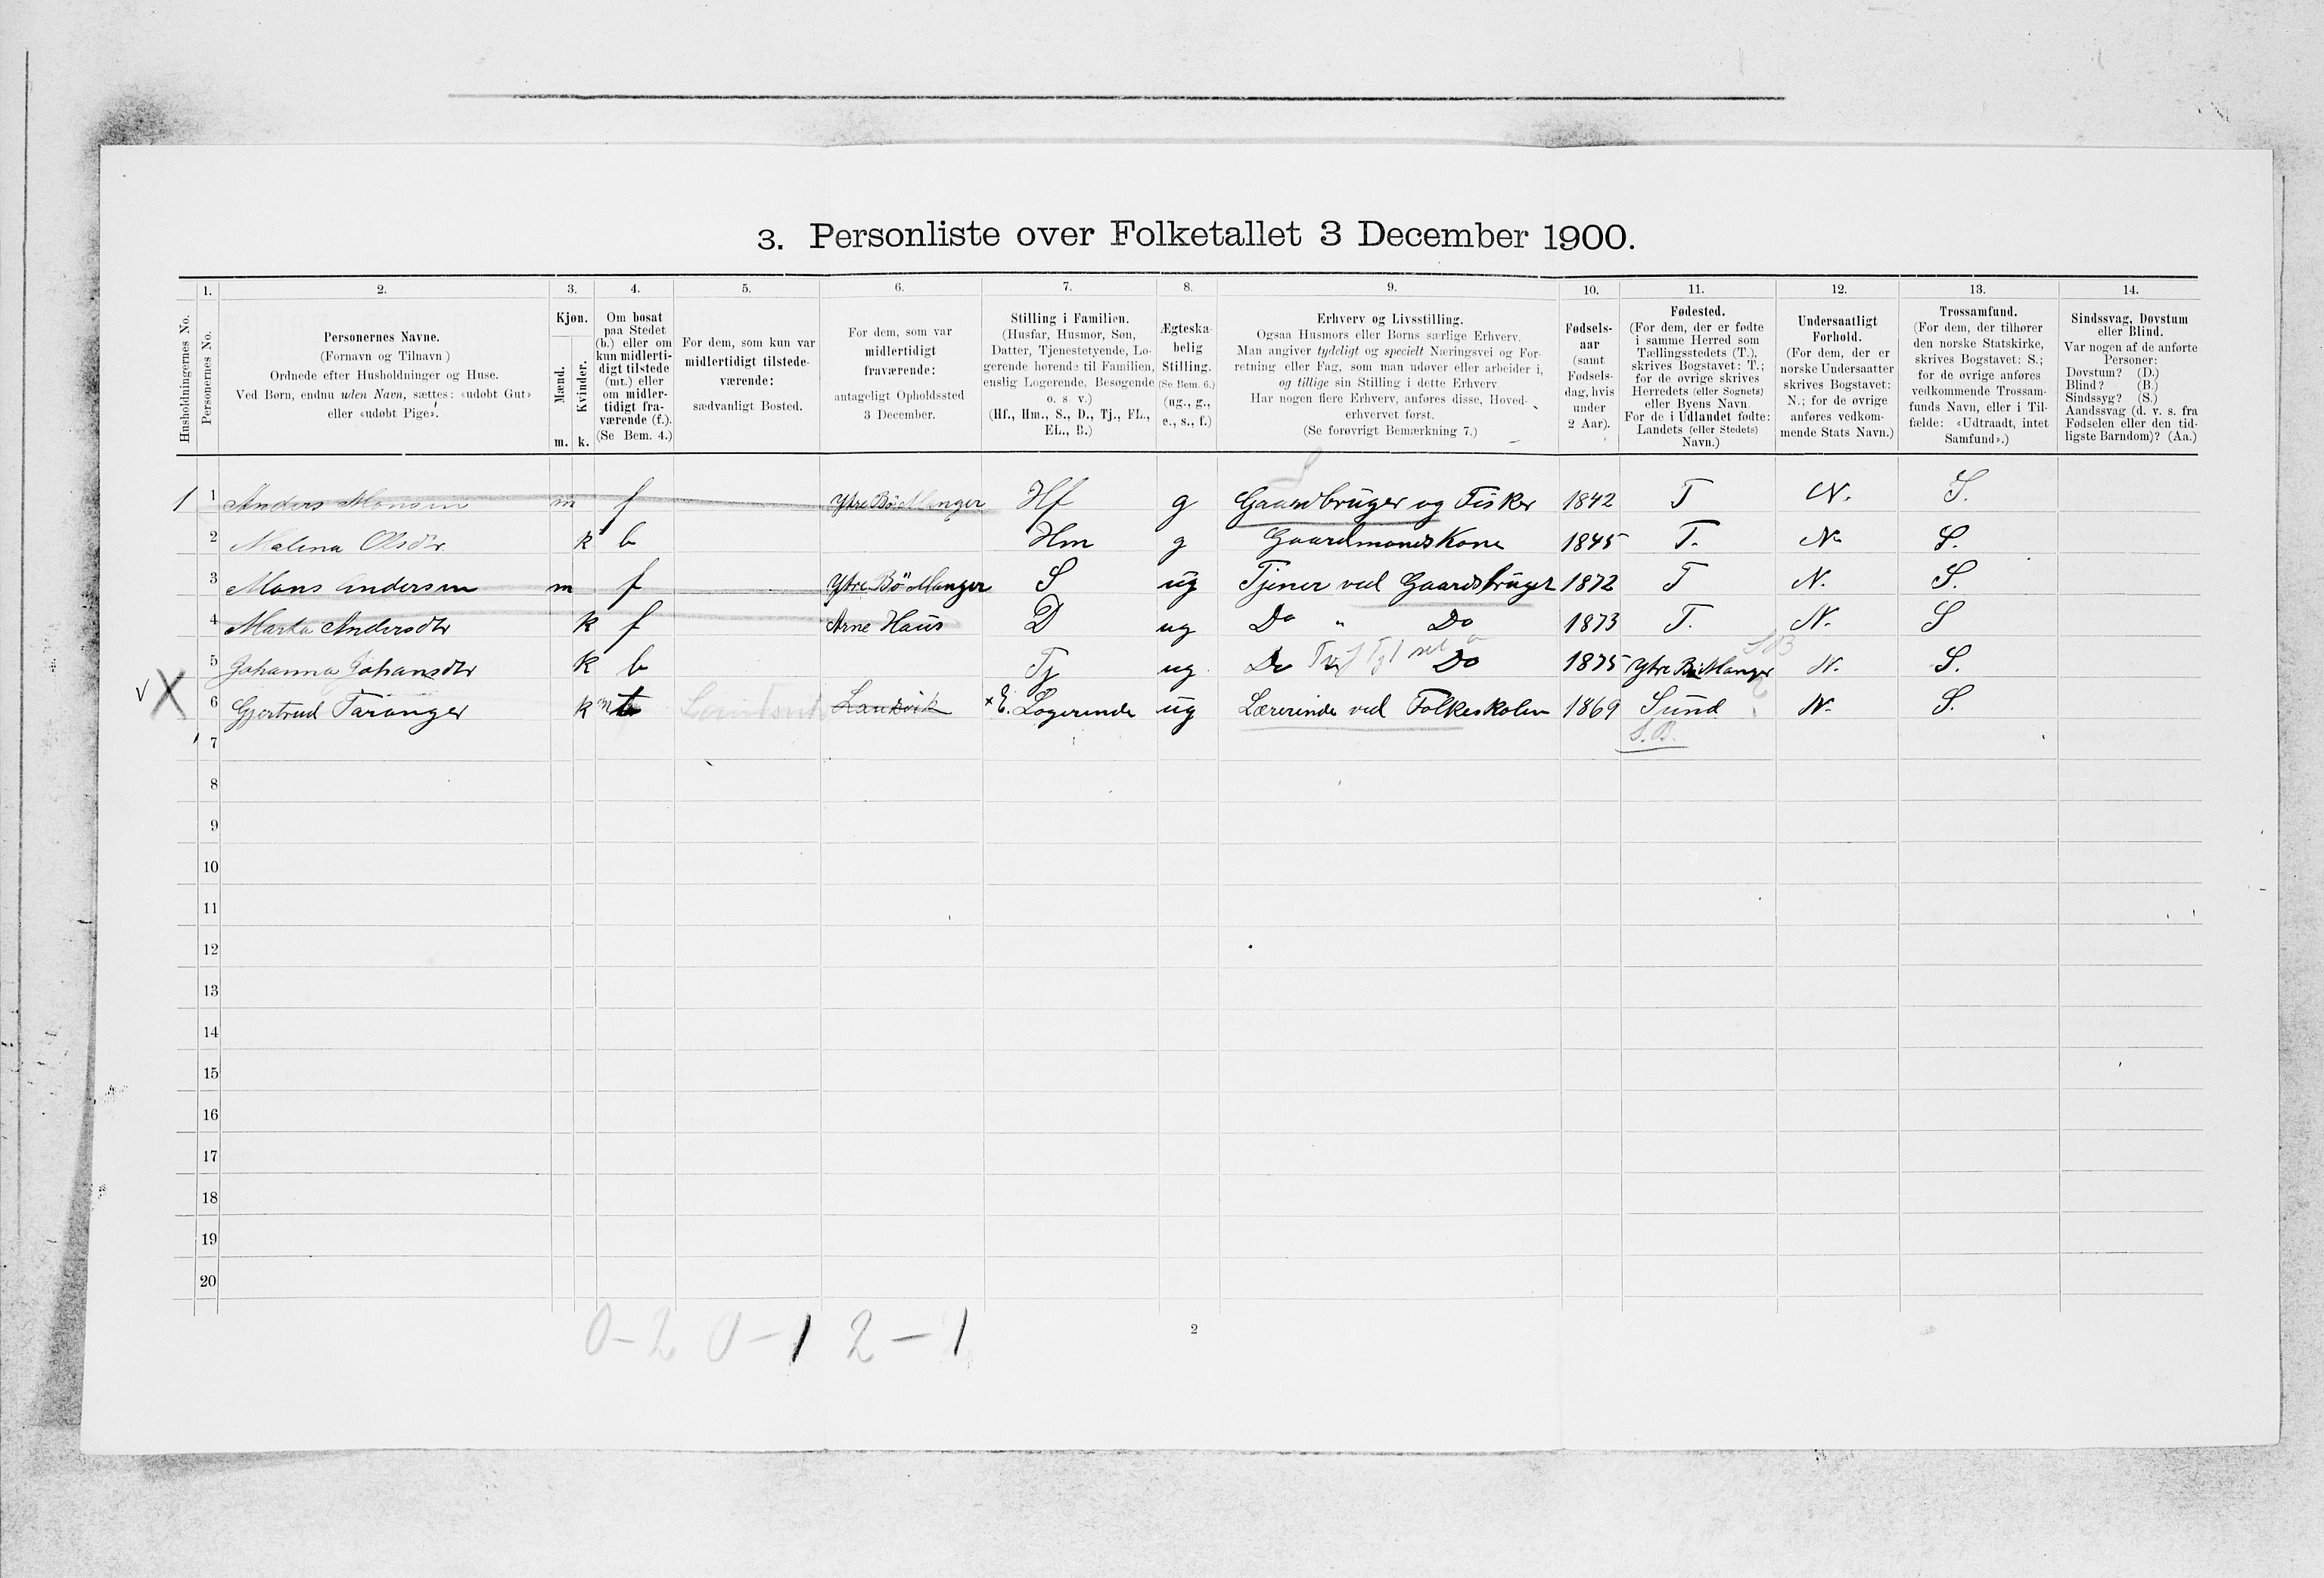 3. Personliste over Folketallet 3 December 1900.
1. 2. 3. 4. 5. 6. 7. 8. 9. 10. 11. 12. 13. 14.
Husholdningernes No.
Personernes No.
Personernes Navne.
(Fornavn og Tilnavn)
Ordnede efter Husholdninger og Huse.
Ved Børn, endnu uden Navn, sættes: «udøbt Gut»
eller «udøbt Pige».
Kjøn.
Mænd.
Kvinder.
m. k.
Om bosat
paa Stedet
(b.) eller om
kun midlerti-
digt tilstede
(mt.) eller
om midler-
tidigt fra-
værende (f.).
(Se Bem. 4.)
For dem, som kun var
midlertidigt tilstede-
værende:
sædvanligt Bosted.
For dem, som var
midlertidigt
fraværende:
antageligt Opholdssted
3 December.
Stilling i Familien.
(Husfar, Husmor, Søn,
Datter, Tjenestetyende, Lo-
gerende hørende til Familien,
enslig Logerende, Besøgende
o. s. v.)
(Hf., Hm., S., D., Tj., FL.,
EL., B.)
Ægteska-
belig
Stilling.
(Se Bem. 6.)
(ug., g.,
e., s., f.)
Erhverv og Livsstilling.
Ogsaa Husmors eller Børns særlige Erhverv.
Man angiver tydeligt og specielt Næringsvei og For-
retning eller Fag, som man udøver eller arbeider i,
og tillige sin Stilling i dette Erhverv.
Har nogen flere Erhverv, anføres disse, Hoved-
erhvervet først.
(Se forøvrigt Bemærkning 7.)
Fødsels-
aar
(samt
Fødsels-
dag, hvis
under
2 Aar).
Fødested.
(For dem, der er fødte
i samme Herred som
Tællingsstedets (T.),
skrives Bogstavet: T.;
for de øvrige skrives
Herredets (eller Sognets)
eller Byens Navn.
For de i Udlandet fødte:
Landets (eller Stedets)
Navn.)
Undersaatligt
Forhold.
(For dem, der er
norske Undersaatter
skrives Bogstavet:
N.; for de øvrige
anføres vedkom-
mende Stats Navn.)
Trossamfund.
(For dem, der tilhører
den norske Statskirke,
skrives Bogstavet: S.;
for de øvrige anføres
vedkommende Trossam-
funds Navn, eller i Til-
fælde: «Udtraadt, intet
Samfund».)
Sindssvag, Døvstum
eller Blind.
Var nogen af de anførte
Personer:
Døvstum? (D.)
Blind? (B.)
Sindssyg? (S.)
Aandssvag (d. v. s. fra
Fødselen eller den tid-
ligste Barndom)? (Aa.)
1 1 Anders Monsen m f Ytre Bö Manger Hf g Gaardbruger og Fisker 1842 T N. S.
2 Malena Olsdtr k b Hm g Gaardmands Kone 1845 T. N. S.
3 Mons Andersen m f Ytre Bö Manger S ug Tjener ved Gaardsbruget 1872 T N. S.
4 Marta Andersdtr k f Arne Haus D ug Do " Do 1873 T. N. S
5 Johanna Johansdtr k b Tj ug. Do Do 1875 Ytre Bö Manger N. S.
X 6 Gjertrud Taranger k mt Landsvik x E. Logerende ug Lærerinde ved Folkeskolen 1869 Sund N. S.
S.B.
7
8
9
10
11
12
13
14
15
16
17
18
19
20
0-2 0-1 2-1
2